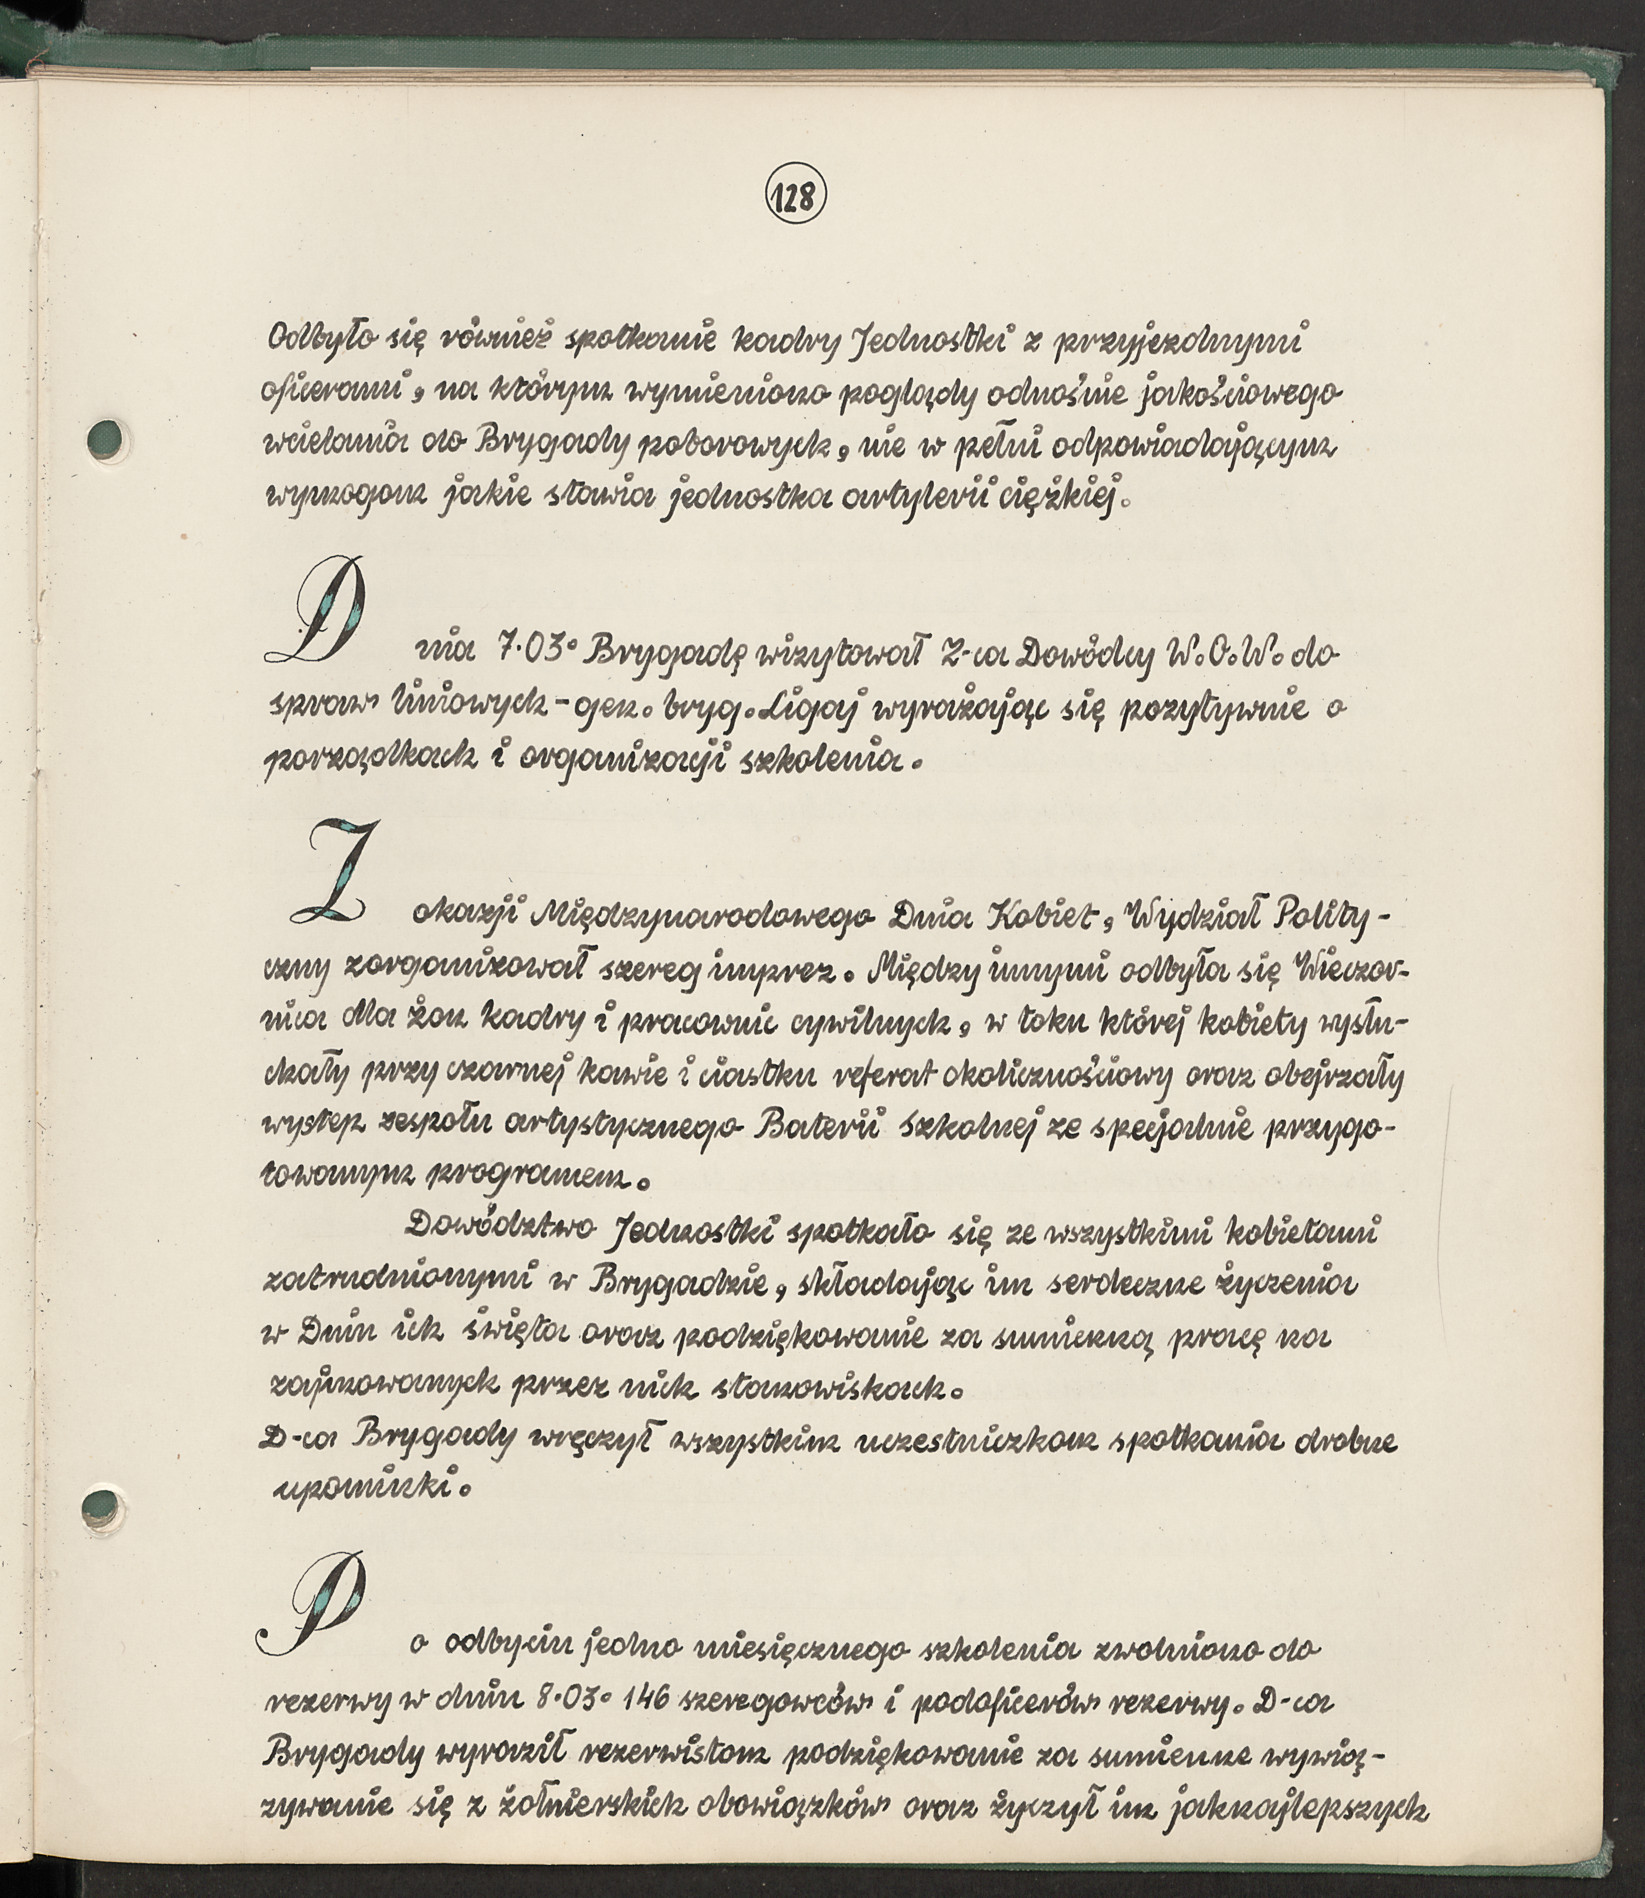 128
Odbyło się również spotkanie kadry Jednostki z przyjezdnymi
oficerami, na którym wymieniono poglądy odnośnie jakościowego
wcielania do Brygady poborowych, nie w pełni odpowiadającym
wymogom jakie stawia jednostka artylerii ciężkiej.
Dnia 7.03. Brygadę wizytował Z-ca Dowódcy W.O.W. do
spraw liniowych - gen. bryg. Ligaj wyrażając się pozytywnie o
porządkach i organizacji szkolenia.
Z okazji Międzynarodowego Dnia Kobiet, Wydział Polity-
czny zorganizował szereg imprez. Między innymi odbyła się Wieczor-
nica dla żon kadry i pracownic cywilnych, w toku której kobiety wysłu-
chały przy czarnej kawie i ciastku referat okolicznościowy oraz obejrzały
wystep zespołu artystycznego Baterii Szkolnej ze specjalnie przygo-
towanym programem.
Dowództwo Jednostki spotkało się ze wszystkimi kobietami
zatrudnionymi w Brygadzie, składając im serdeczne życzenia
w Dniu ich święta oraz podziękowanie za sumienną pracę na
zajmowanych przez nich stanowiskach.
D-ca Brygady wręczył wszystkim uczestniczkom spotkania drobne
upominki.
Po odbyciu jedno miesięcznego szkolenia zwolniono do
rezerwy w dniu 8.03. 146 szeregowców i podoficerów rezerwy. D-ca
Brygady wyraził rezerwistom podziękowanie za sumienne wywią-
zywanie się z żołnierskich obowiązków oraz życzył im jaknajlepszych